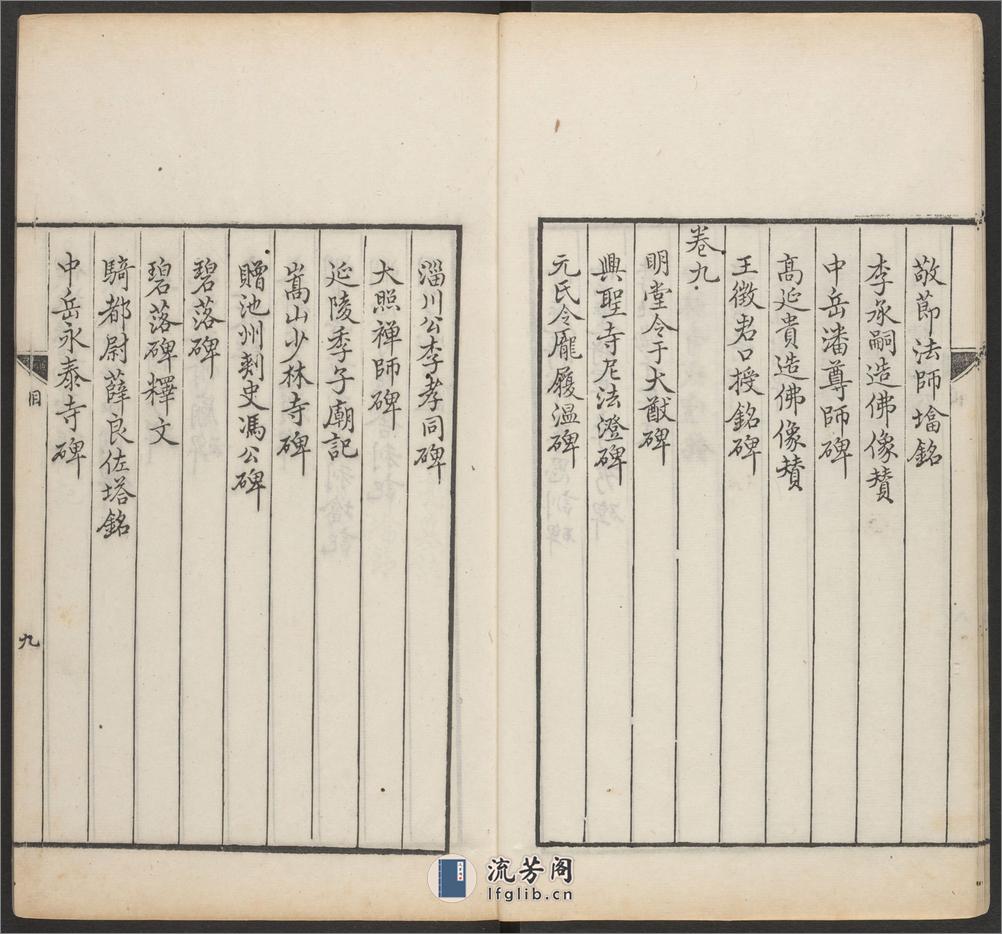 敬節法師塔銘
李承嗣造佛像賛
中岳潘尊師碑
高延貴造佛像賛
王徵君口授銘碑
卷九
明堂令于大猷碑
興聖寺尼法澄碑
元氏令龐履溫碑
淄川公李孝同碑
大照禅師碑
延陵季子廟記
嵩山少林寺碑
贈池州刺史馮公碑
碧落碑
碧落碑釋文
騎都尉薛良佐塔銘
中岳永泰寺碑
目
九
流芳阁
lfglib.cn